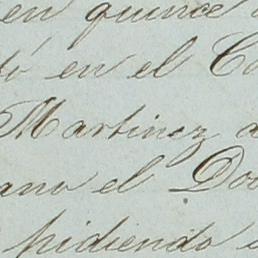 en quince
tó en el Co
Martinez a
ano el Doc
pidiendo